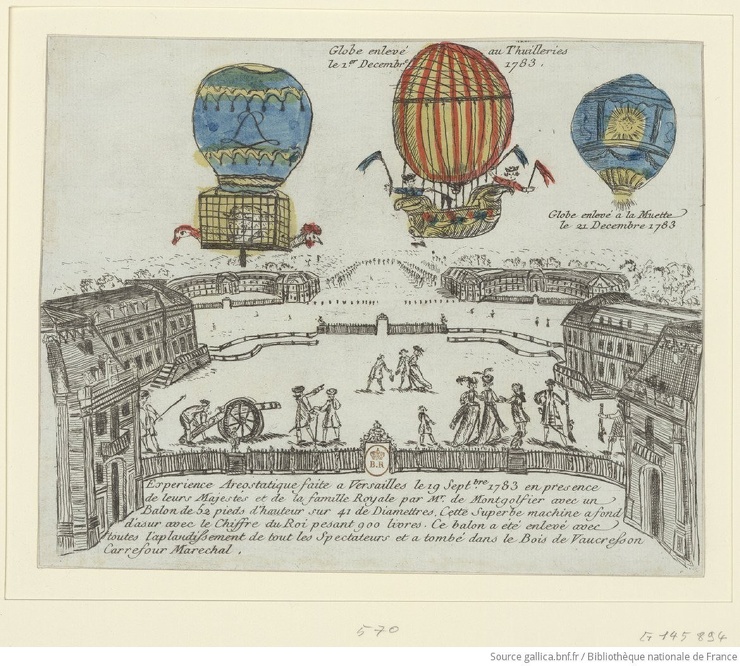 Globe enlevé au Thuilleries
le 1er Decembre 1783.
Globe enlevé à la Muette
le 21 Decembre 1783
B.R
Esperience Areostatique faite a Versailles le 19 Sept.bre 1783 en presence
de leurs Majestés et de la famille Royale par Mr. de Montgolfier avec un
Balon de 52 pieds d'hauteur sur 41 de Diamettres. Cette Superbe machine a fond
d'asur avec le Chiffre du Roi pesant 900 livres. Ce balon a eté enlevé avec
toutes l'aplandissement de tout les Spectateurs et a tombé dans le Bois de Vaucresson
Carrefour Marechal.
570
G 145894
Source gallica.bnf.fr / Bibliothèque nationale de France